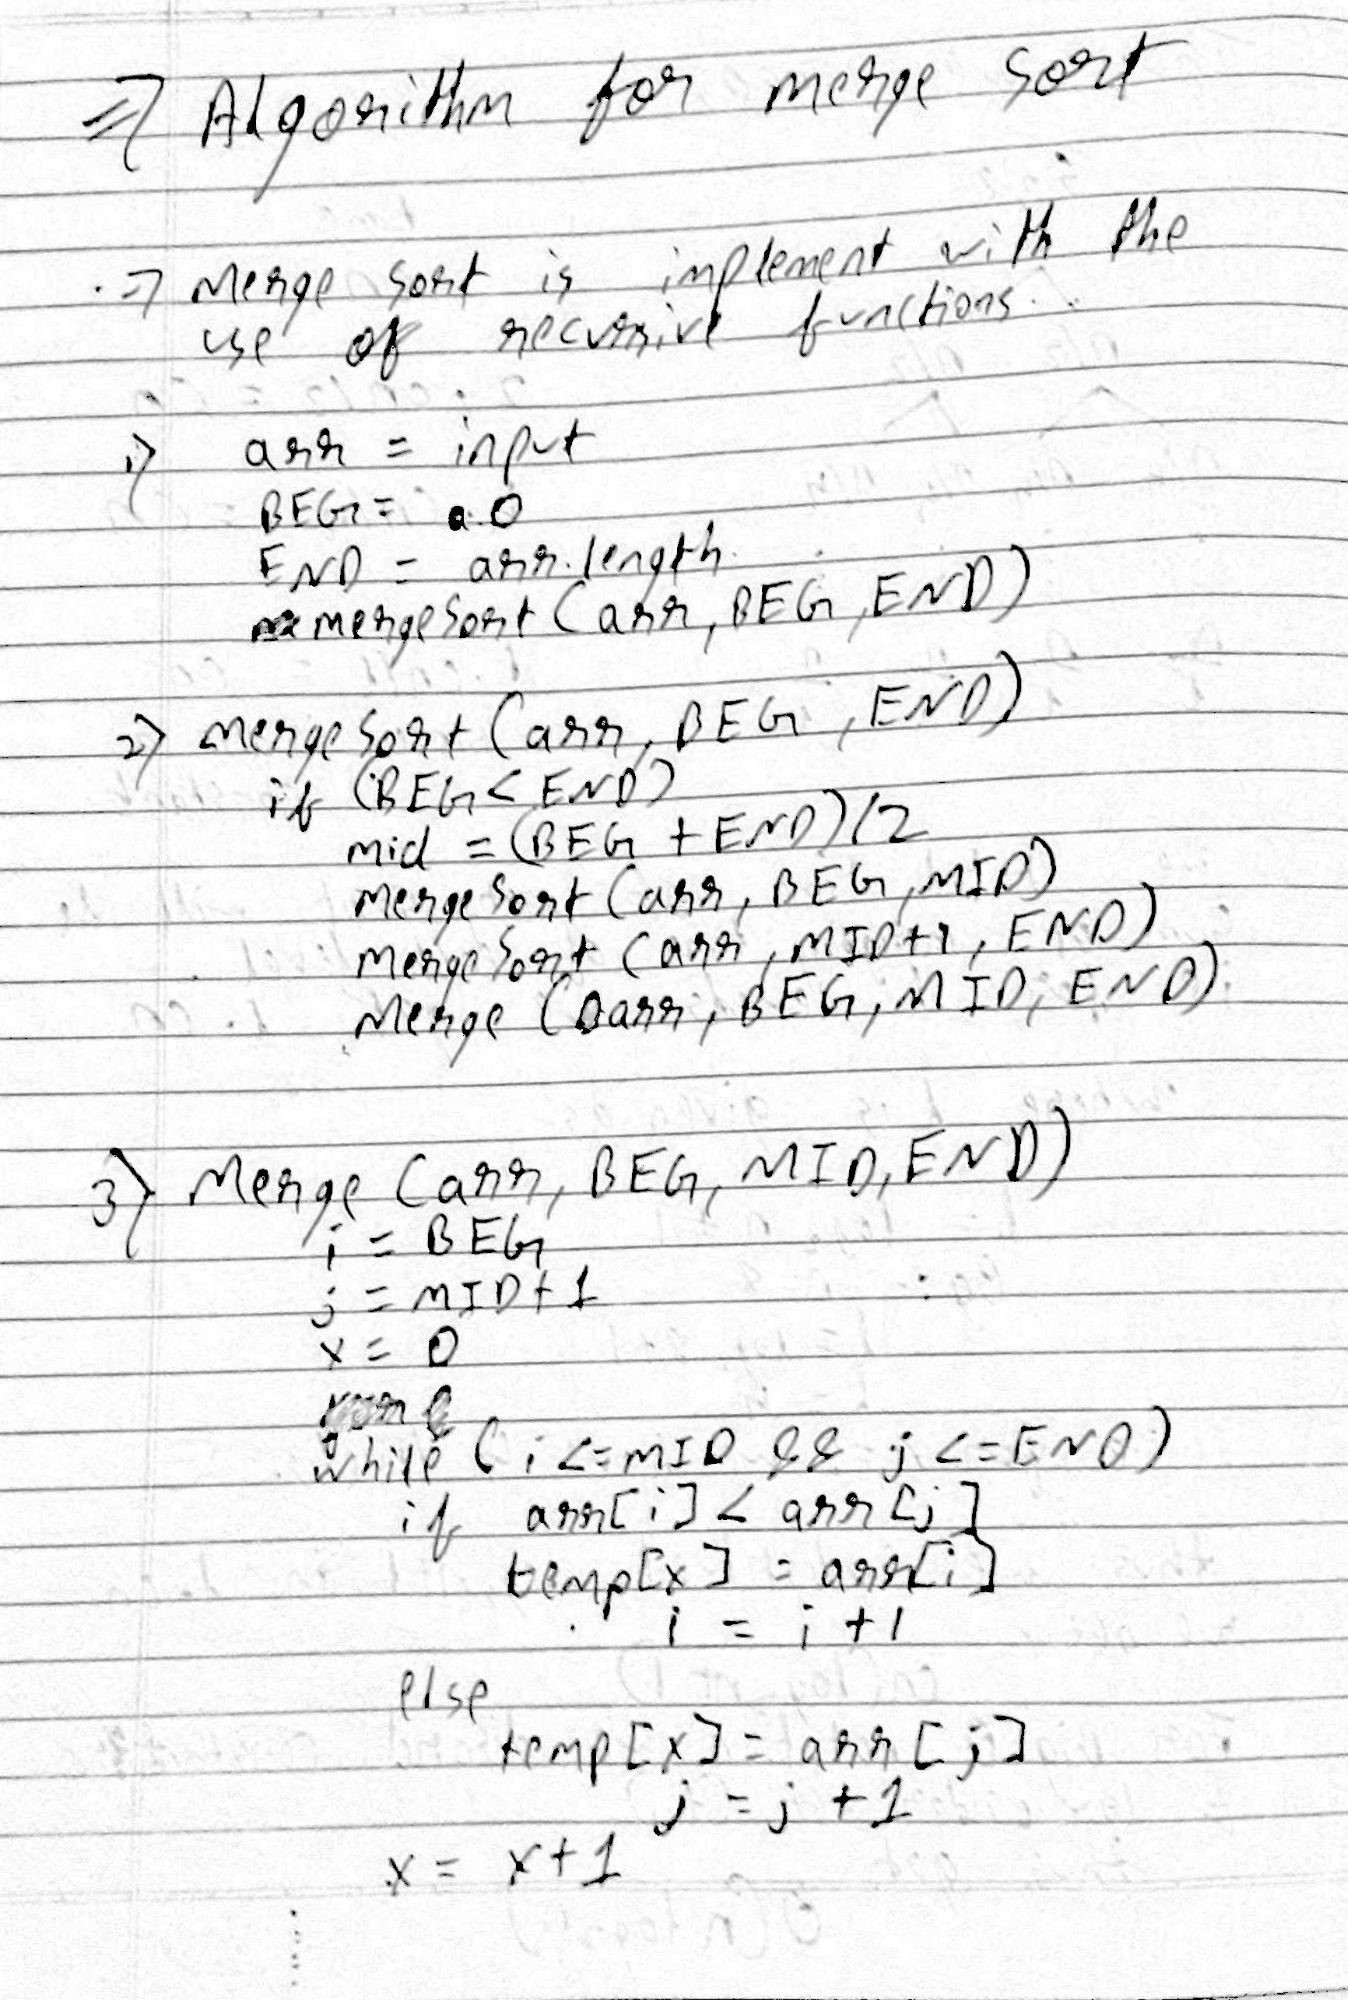 => Algorithm for merge sort
.=> Merge sort is implement with the
use of recursive functions.
1) arr = input
BEG = 0
END = arr.length
mergeSort (arr, BEG, END)
2) MergeSort (arr, BEG, END)
if (BEG < END)
mid = (BEG + END)/2
MergeSort (arr, BEG, MID)
MergeSort (arr, MID+1, END)
Merge (arr, BEG, MID, END)
3) Merge (arr, BEG, MID, END)
i = BEG
j = MID+1
x = 0
while ( i <= MID && j <= END)
if arr[i] < arr[j]
temp[x] = arr[i]
i = i + 1
else
temp[x] = arr[j]
j = j + 1
x = x+1